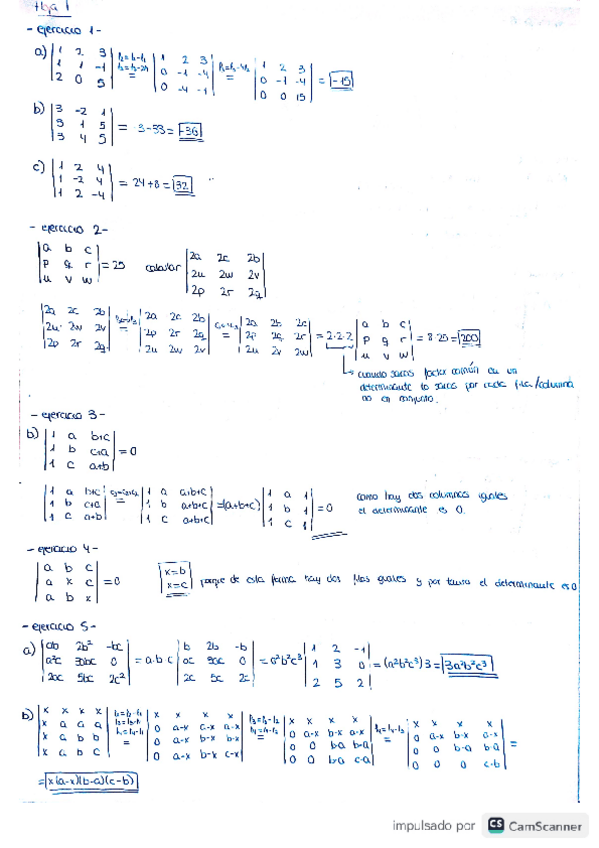 Hoja 1
- ejercicio 1 -
a) |1 2 3; 1 1 -1; 2 0 5| = |1 2 3; 0 -1 -4; 0 -4 -1| = |1 2 3; 0 -1 -4; 0 0 15| = -15
b) |3 -2 1; 3 1 5; 3 4 5| = 3-53 = -36
c) |1 2 4; 1 -2 4; 1 2 -4| = 24+8 = 32
- ejercicio 2 -
|a b c; p q r; u v w| = 25 calcular |2a 2c 2b; 2u 2w 2v; 2p 2r 2q|
|2a 2c 2b; 2u 2w 2v; 2p 2r 2q| = |2a 2c 2b; 2p 2r 2q; 2u 2w 2v| = |2a 2b 2c; 2p 2q 2r; 2u 2v 2w| = 2·2·2 |a b c; p q r; u v w| = 8·25 = 200
cuando sacas factor común en un
determinante lo sacas por cada fila/columna
no en conjunto.
- ejercicio 3 -
b) |1 a b+c; 1 b c+a; 1 c a+b| = 0
|1 a b+c; 1 b c+a; 1 c a+b| = |1 a a+b+c; 1 b a+b+c; 1 c a+b+c| = (a+b+c) |1 a 1; 1 b 1; 1 c 1| = 0 como hay dos columnas iguales
el determinante es 0.
- ejercicio 4 -
|a b c; a x c; a b x| = 0 x=b x=c porque de esta forma hay dos filas iguales y por tanto el determinante es 0
- ejercicio 5 -
a) |ab 2b² -bc; a²c 3abc 0; 2ac 5bc 2c²| = a·b·c |b 2b -b; ac 3ac 0; 2c 5c 2c| = a²b²c³ |1 2 -1; 1 3 0; 2 5 2| = (a²b²c³)3 = 3a²b²c³
b) |x x x x; x a a a; x a b b; x a b c| = |x x x x; 0 a-x a-x a-x; 0 a-x b-x b-x; 0 a-x b-x c-x| = |x x x x; 0 a-x b-x a-x; 0 0 b-a b-a; 0 0 b-a c-a| = |x x x x; 0 a-x b-x a-x; 0 0 b-a b-a; 0 0 0 c-b| =
= x(a-x)(b-a)(c-b)
impulsado por CS CamScanner